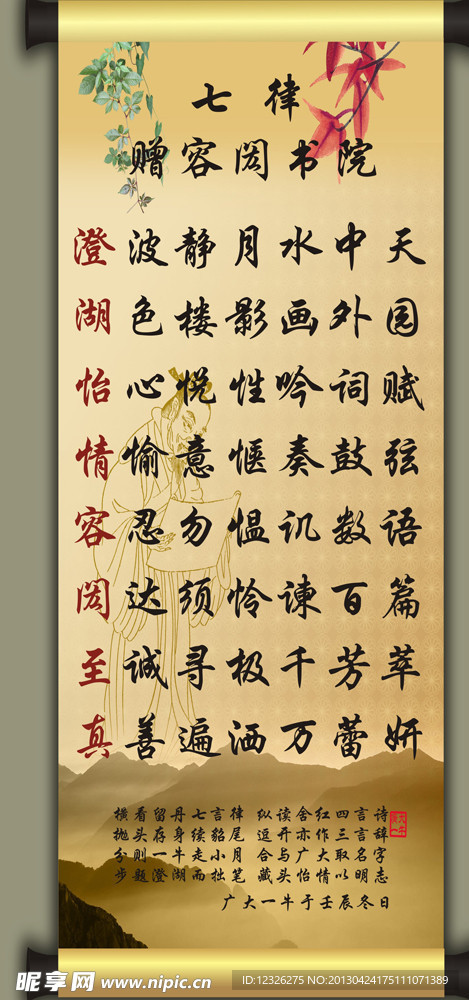 七律
赠容闳书院
澄波静月水中天
湖色楼影画外园
怡心悦性吟词赋
情愉意惬奏鼓弦
容忍勿愠讥数语
闳达须怜谏百篇
至诚寻极千芳萃
真善遍洒万蕾妍
横看留丹七言律 纵读舍红四言诗
抛头存身续貂尾 逗开亦作三言辞
分则一牛走小月 合与广大取名字
步题澄湖而拙笔 藏头怡情以明志
广大一牛于壬辰冬日
昵享网 www.nipic.cn
ID:12326275 NO:20130424175111071389